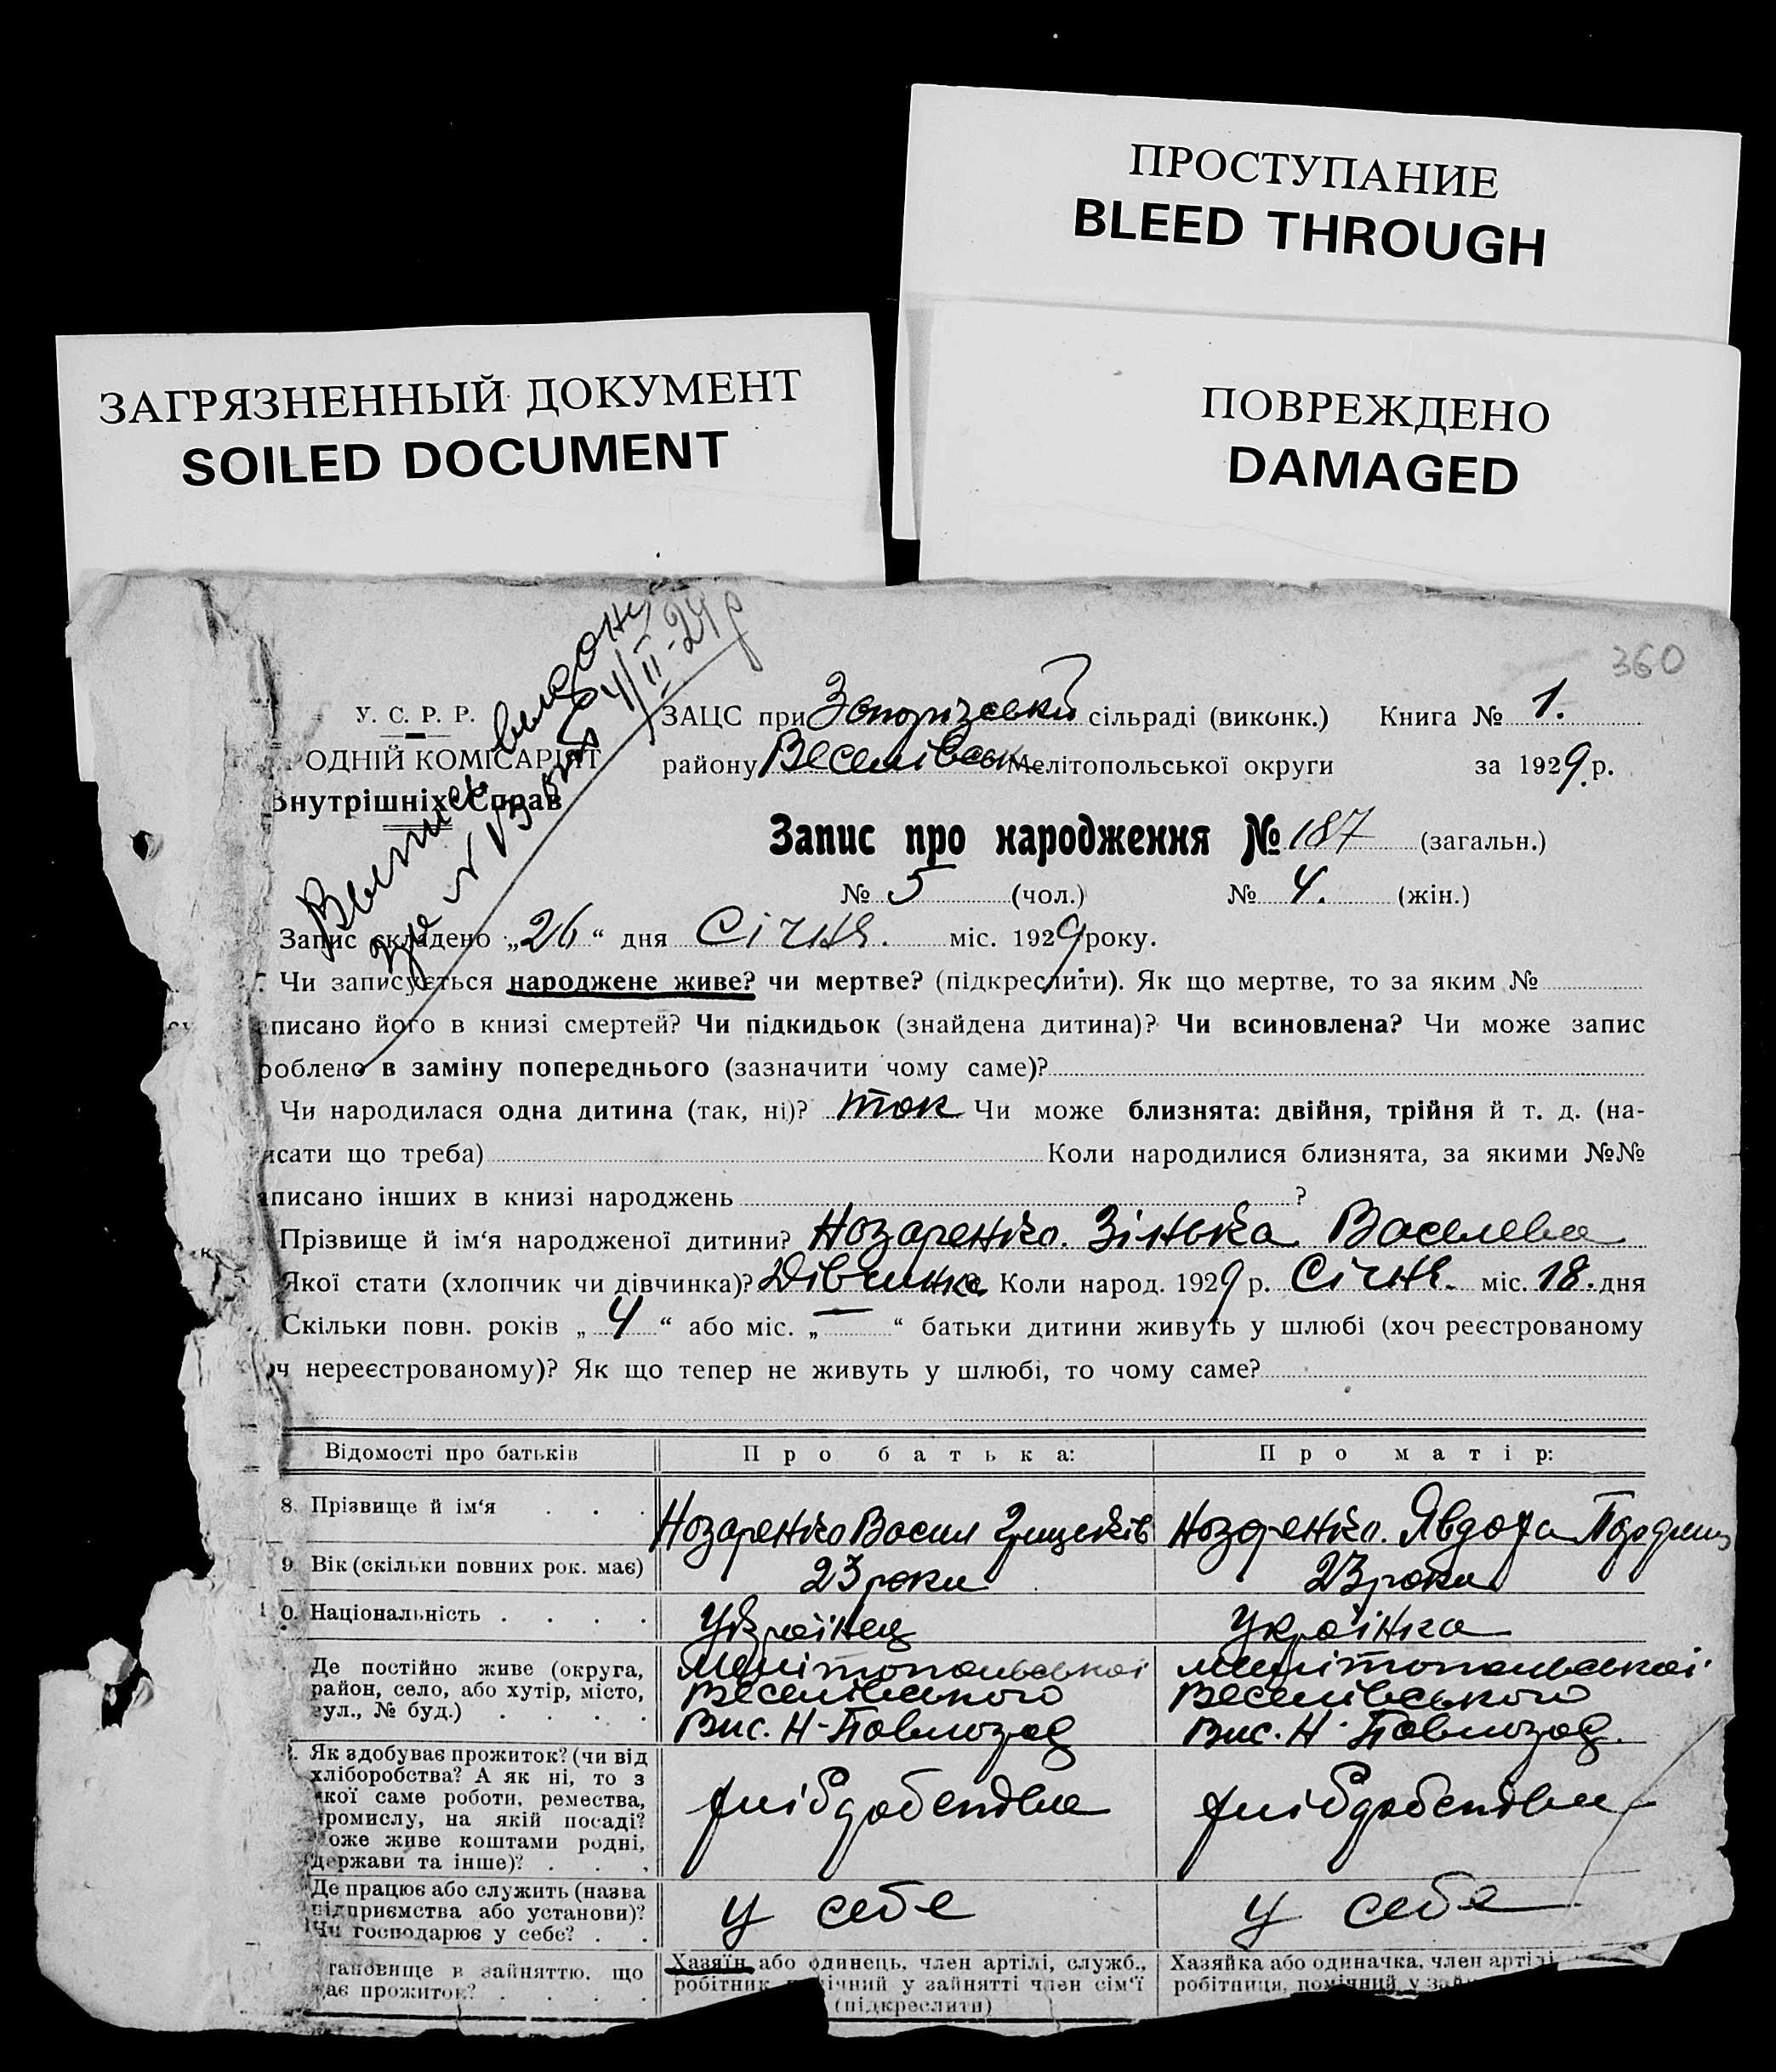 ПРОСТУПАНИЕ
BLEED THROUGH
ЗАГРЯЗНЕННЫЙ ДОКУМЕНТ
SOILED DOCUMENT
ПОВРЕЖДЕНО
DAMAGED
360
У. С. Р. Р.
ОДНІЙ КОМІСАРІЯТ
Внутрішніх Справ
ЗАЦС при Запорізській сільраді (виконк.) Книга № 1.
району Веселівськ Мелітопольської округи за 1929 р.
Запис про народження № 187 (загальн.)
№ 5 (чол.) № 4. (жін.)
Запис складено „26“ дня Січня. міс. 1929 року.
Чи записується народжене живе? чи мертве? (підкреслити). Як що мертве, то за яким №
писано його в книзі смертей? Чи підкидьок (знайдена дитина)? Чи всиновлена? Чи може запис
роблено в заміну попереднього (зазначити чому саме)?
Чи народилася одна дитина (так, ні)? так Чи може близнята: двійня, трійня й т. д. (на-
исати що треба) Коли народилися близнята, за якими №№
писано інших в книзі народжень ?
Прізвище й ім‘я народженої дитини? Назаренко. Зінька Василева
Якої стати (хлопчик чи дівчинка)? Дівчинка Коли народ. 1929 р. Січня. міс. 18. дня
Скільки повн. років „4“ або міс. „—“ батьки дитини живуть у шлюбі (хоч реєстрованому
оч нереєстрованому)? Як що тепер не живуть у шлюбі, то чому саме?
Відомості про батьків Про батька: Про матір:
8. Прізвище й ім‘я Назаренко Васил Грицьків Назаренко. Явдоха
9. Вік (скільки повних рок. має) 23 роки 23 роки
10. Національність Українец Українка
Де постійно живе (округа, Мелітопольської Мелітопольської
район, село, або хутір, місто, Веселівського Веселівського
вул., № буд.) Вис. Н-Павлоград Вис. Н-Павлоград.
Як здобуває прожиток? (чи від
хліборобства? А як ні, то з
якої саме роботи, ремества,
промислу, на якій посаді? хлібдобепдва хлібдобепдва
може живе коштами родні,
держави та інше)?
Де працює або служить (назва
підприємства або установи)? у себе у себе
Чи господарює у себе?
тановище в зайняттю, що Хазяїн або одинець, член артілі, служб., Хазяйка або одиначка, член артілі
ає прожиток? робітник, помічний у зайнятті член сім‘ї робітниця, помічний у
(підкреслити)